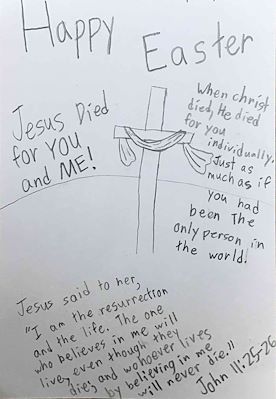 Happy
Easter
Jesus Died
for YOU
and ME!
When christ
died, He died
for you
individually,
Just as
much as if
you had
been The
only person in
the world!
Jesus said to her,
"I am the resurrection
and the life. The one
who believes in me will
live, even though they
die; and wohoever lives
by believing in me
will never die."
John 11:25-26